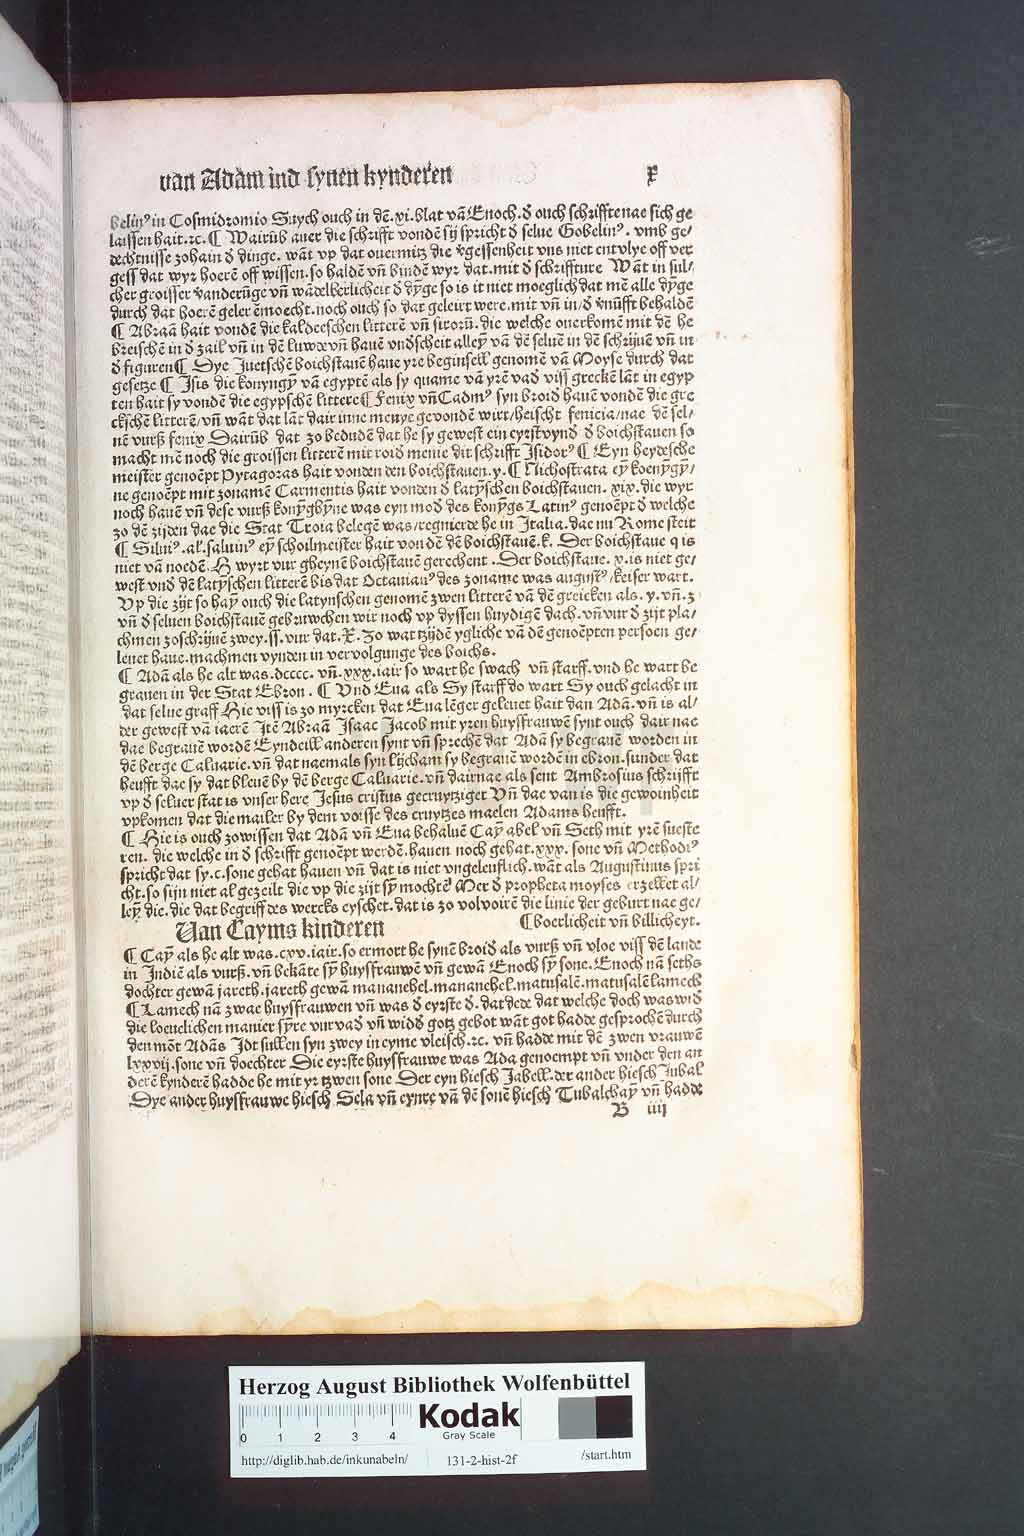 van Adam ind synen kynderen x
belinꝰ in Cosmidromio Suych ouch in dē.vi.blat vā Enoch.ð ouch schrifftenae sich ge
laissen hait.ꝛc.¶ Wairūb auer die schrifft vondē sij spricht ð selue Gobelinꝰ. vmb ge/
dechtnisse zohain ð dinge. wāt vp dat ouermitz die v̄gessenheit vns niet entvlye off ver
gess dat wyr hoerē off wissen.so haldē vñ bindē wyr dat.mit ð schriffture Wāt in sul/
cher groisser v̄anderūge vñ wādelberlicheit ð dȳge so is it niet moeglich dat mē alle dȳge
durch dat hoerē geler ēmoecht.noch ouch so dat geleirt were.mit vñ in/ð v̄nūfft behaldē
¶ Abraā hait vondē die kaldeeschen litterē vñ sirorū.die welche ouerkomē mit dē he
breischē in ð zail vñ in dē luwdē vñ hauē vndscheit alleȳ vā dē seluē in dē schrijuē vñ in
ð figuren¶ Dye Juetschē boichstauē haue yre beginsell genomē vā Moyse durch dat
gesetze ¶ Isis die konyngȳ vā egyptē als sy quame vā yrē vað viss greckē lāt in egyp
ten hait sy vondē die egypschē littere¶ Fenix vñ Cadmꝰ syn broið hauē vondē die gre
ckschē litterē/vñ wāt dat lāt dair inne menye gevondē wirt/heischt fenicia/nae dē sel/
uē vurß fenix Dairūb dat zo bedudē dat he sy gewest ein eyrstvynð ð boichstauen so
macht mē noch die groissen litterē mit roið menie dit schrifft Isidorꝰ ¶ Eyn heydesche
meister genoēpt Pytagoras hait vonden den boichstauen.y.¶ Nichostrata eȳ koenȳgȳ/
ne genoēpt mit zonamē Carmentis hait vonden ð latȳschen boichstauen. xix.die wyr
noch hauē vñ dese vurß konȳgȳne was eyn moð des konȳgs Latinꝰ genoēpt ð welche
zo dē zijden dae die Stat Troia belegē was/regnierde he in Italia.dae nu Rome steit
¶ Siluiꝰ.al.saluiꝰ eȳ schoilmeister hait vondē dē boichstauē.k. Der boichstaue q is
niet vā noedē.H wyrt vur gheynē boichstauē gerechent .Der boichstaue. x.is niet ge/
west vnð dē latȳschen litterē bis dat Octauianꝰ des zoname was augustꝰ/keiser wart.
Vp die zijt so haȳ ouch die latynschen genomē zwen litterē vā dē greicken als. y. vñ. z
vñ ð seluen boichstauē gebruwchen wir noch vp dyssen huydigē dach. vñ vur ð zijt pla/
chmen zoschrijuē zwey.ss.vur dat.X. Zo wat tzijdē ygliche vā dē genoēpten persoen ge/
leuet haue.machmen vynden in vervolgunge des boichs.
¶ Adā als he alt was.dcccc. vñ.xxx.iair so wart he swach vñ starff.vnd he wart be
grauen in der Stat Ebron. ¶ Vnd Eua als Sy starff do wart Sy ouch gelacht in
dat selue graff Hie viss is zo myrcken dat Eua lēger geleuet hait dan Adā.vñ is al/
der gewest vā iaerē Itē Abraā Isaac Jacob mit yren huysfrauwē synt ouch dair nae
dae begrauē wordē Eyndeill anderen synt vñ sprechē dat Adā sy begrauē worden in
dē berge Caluarie.vñ dat naemals syn lijcham sy begrauē wordē in ebron.sunder dat
heufft dae sy dat bleuē by dē berge Caluarie.vñ dairnae als sent Ambrosius schrijfft
vp ð seluer stat is vnser here Jesus cristus gecruytziget Vñ dae van is die gewoinheit
vpkomen dat die mailer by dem voisse des cruytzes maelen Adams heufft.
¶ Hie is ouch zowissen dat Adā vñ Eua behaluē Caȳ abel vñ Seth mit yrē sueste
ren. die welche in ð schrifft genoēpt werdē.hauen noch gehat.xxx. sone vñ Methodiꝰ
spricht dat sy.c.sone gehat hauen vñ dat is niet vngeleuflich.wāt als Augustinus spri
cht.so sijn niet al gezeilt die vp die zijt sȳ mochtē Mer ð propheta moyses erzellet al/
leȳ die.die dat begriff des wercks eyschet.dat is zo volvoirē die linie der geburt nae ge/
Van Cayms kinderen ¶boerlicheit vñ billicheyt.
¶ Caȳ als he alt was.cxv.iair.so ermort he synē broið als vurß vñ vloe viss dē lande
in Indiē als vurß.vñ bekāte sȳ huysfrauwē vñ gewā Enoch sȳ sone.Enoch nā seths
dochter gewā jareth.jareth gewā mananehel.mananehel.matusalē.matusalē lamech
¶ Lamech nā zwae huysfrauwen vñ was ð eyrste ð.datdede dat welche doch was wið
die loeuelichen manier sȳre vurvað vñ wiðð gotz gebot wāt got hadde gesprochē durch
den mōt Adās Idt sullen syn zwey in eyme vleisch.ꝛc. vñ hadde mit dē zwen vrauwē
lxxvij.sone vñ doechter Die eyrste huysfrauwe was Ada genoempt vñ vnder den an
derē kynderē hadde he mit yr tzwen sone Der eyn hiesch Jabell.der ander hiesch Jubal
Dye ander huysfrauwe hiesch Sela vñ eynre vā dē sonē hiesch Tubalchaȳ vñ hadde
B iiij
Herzog August Bibliothek Wolfenbüttel
0 1 2 3 4
Kodak
Gray Scale
http://diglib.hab.de/inkunabeln/ 131-2-hist-2f /start.htm